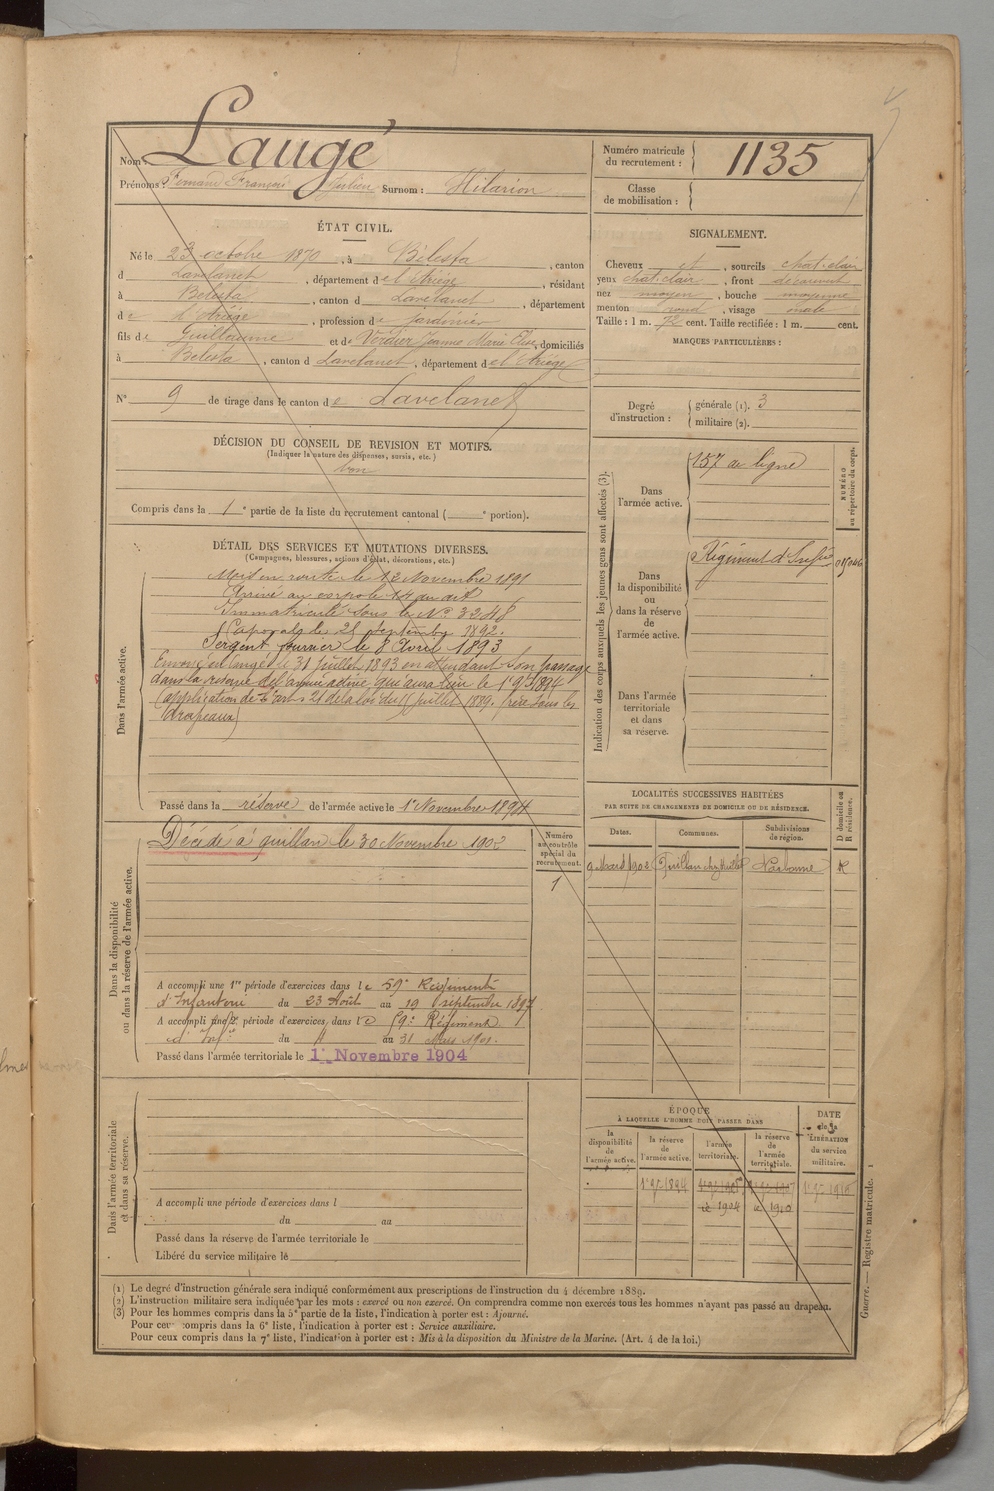 Nom : Laugé
Prénoms : Fernand François Julien Surnom : Hilarion
Numéro matricule du recrutement : 1135
Classe de mobilisation :
ÉTAT CIVIL.
Né le 23 octobre 1870, à Bélesta, canton
d Lavelanet, département de l'Ariège, résidant
à Belesta, canton d Lavelanet, département
de l'Ariège, profession de jardinier
fils de Guillaume et de Verdier Jeanne Marie Elise, domiciliés
à Belesta, canton d Lavelanet, département de l'Ariège
N° 9 de tirage dans le canton de Lavelanet
SIGNALEMENT.
Cheveux et, sourcils chat. clair
yeux chat. clair, front découvert
nez moyen, bouche moyenne
menton rond, visage mate
Taille : 1 m. 72 cent. Taille rectifiée : 1 m. cent.
MARQUES PARTICULIÈRES :
Degré d'instruction : générale (1). 3
militaire (2).
DÉCISION DU CONSEIL DE REVISION ET MOTIFS.
(Indiquer la nature des dispenses, sursis, etc.)
bon
Compris dans la 1e partie de la liste du recrutement cantonal ( e portion).
DÉTAIL DES SERVICES ET MUTATIONS DIVERSES.
(Campagnes, blessures, actions d'éclat, décorations, etc.)
Dans l'armée active.
Mis en route le 12 Novembre 1891
Arrivé au corps le 14 du dit
Immatriculé sous le N° 3248
Caporal le 28 septembre 1892.
Sergent fourrier le 8 Avril 1893
Envoyé en congé le 31 Juillet 1893 en attendant son passage
dans la réserve de l'armée active qui aura lieu le 1er 9bre 1894
(application de l'art. 21 de la loi du 15 juillet 1889. frère sous les
drapeaux)
Passé dans la réserve de l'armée active le 1er Novembre 1894
Indication des corps auxquels les jeunes gens sont affectés (3).
NUMÉRO au répertoire du corps.
Dans l'armée active.
157 de ligne
Dans la disponibilité ou dans la réserve de l'armée active.
Régiment d'Infie
Dans l'armée territoriale et dans sa réserve.
Dans la disponibilité ou dans la réserve de l'armée active.
Décédé à Quillan le 30 Novembre 1903
Numéro au contrôle spécial du recrutement.
1
A accompli une 1re période d'exercices dans le 59e Régiment
d'Infanterie du 23 Août au 19 septembre 1897
A accompli une 2e période d'exercices dans le 59e Régiment
d'Infie du 4 au 31 Mars 1901.
Passé dans l'armée territoriale le 1er Novembre 1904
LOCALITÉS SUCCESSIVES HABITÉES
PAR SUITE DE CHANGEMENTS DE DOMICILE OU DE RÉSIDENCE.
Dates. Communes. Subdivisions de région. D domicile ou R résidence.
9 Mars 1902 Quillan Narbonne R
Dans l'armée territoriale et dans sa réserve.
A accompli une période d'exercices dans l
du au
Passé dans la réserve de l'armée territoriale le
Libéré du service militaire le
ÉPOQUE
À LAQUELLE L'HOMME DOIT PASSER DANS
la disponibilité de l'armée active.
la réserve de l'armée active.
l'armée territoriale.
la réserve de l'armée territoriale.
DATE de la LIBÉRATION du service militaire.
1er 9bre 1894 1er 9bre 1907 1er 9bre 1916
1904 1910
(1) Le degré d'instruction générale sera indiqué conformément aux prescriptions de l'instruction du 4 décembre 1889.
(2) L'instruction militaire sera indiquée par les mots : exercé ou non exercé. On comprendra comme non exercés tous les hommes n'ayant pas passé au drapeau.
(3) Pour les hommes compris dans la 5e partie de la liste, l'indication à porter est : Ajourné.
Pour ceux compris dans la 6e liste, l'indication à porter est : Service auxiliaire.
Pour ceux compris dans la 7e liste, l'indication à porter est : Mis à la disposition du Ministre de la Marine. (Art. 4 de la loi.)
Guerre. — Registre matricule. 1